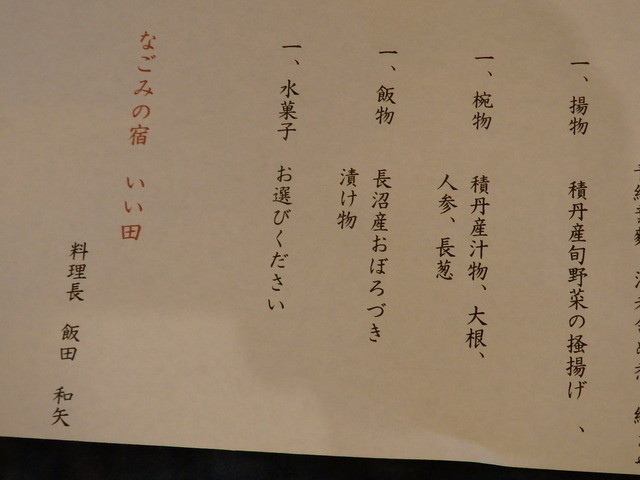 一、揚物 積丹産旬野菜の掻揚げ、
一、椀物 積丹産汁物、大根、
人参、長葱
一、飯物 長沼産おぼろづき
漬け物
一、水菓子 お選びください
なごみの宿 いい田
料理長 飯田 和矢